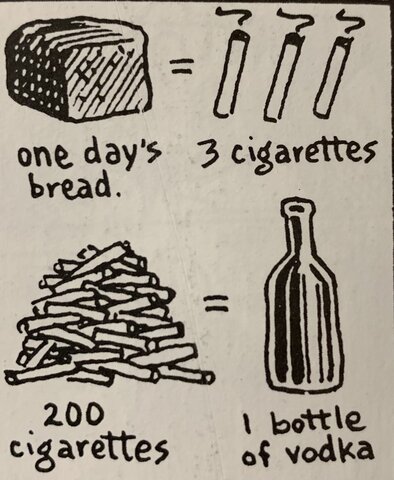 one day's
bread.
=
3 cigarettes
200
cigarettes
=
1 bottle
of vodka